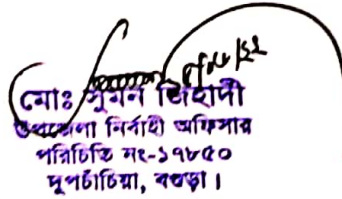 মোঃ সুমন জিহাদী
উপজেলা নির্বাহী অফিসার
পরিচিতি নং-১৭৮৫০
দুপচাঁচিয়া, বগুড়া।